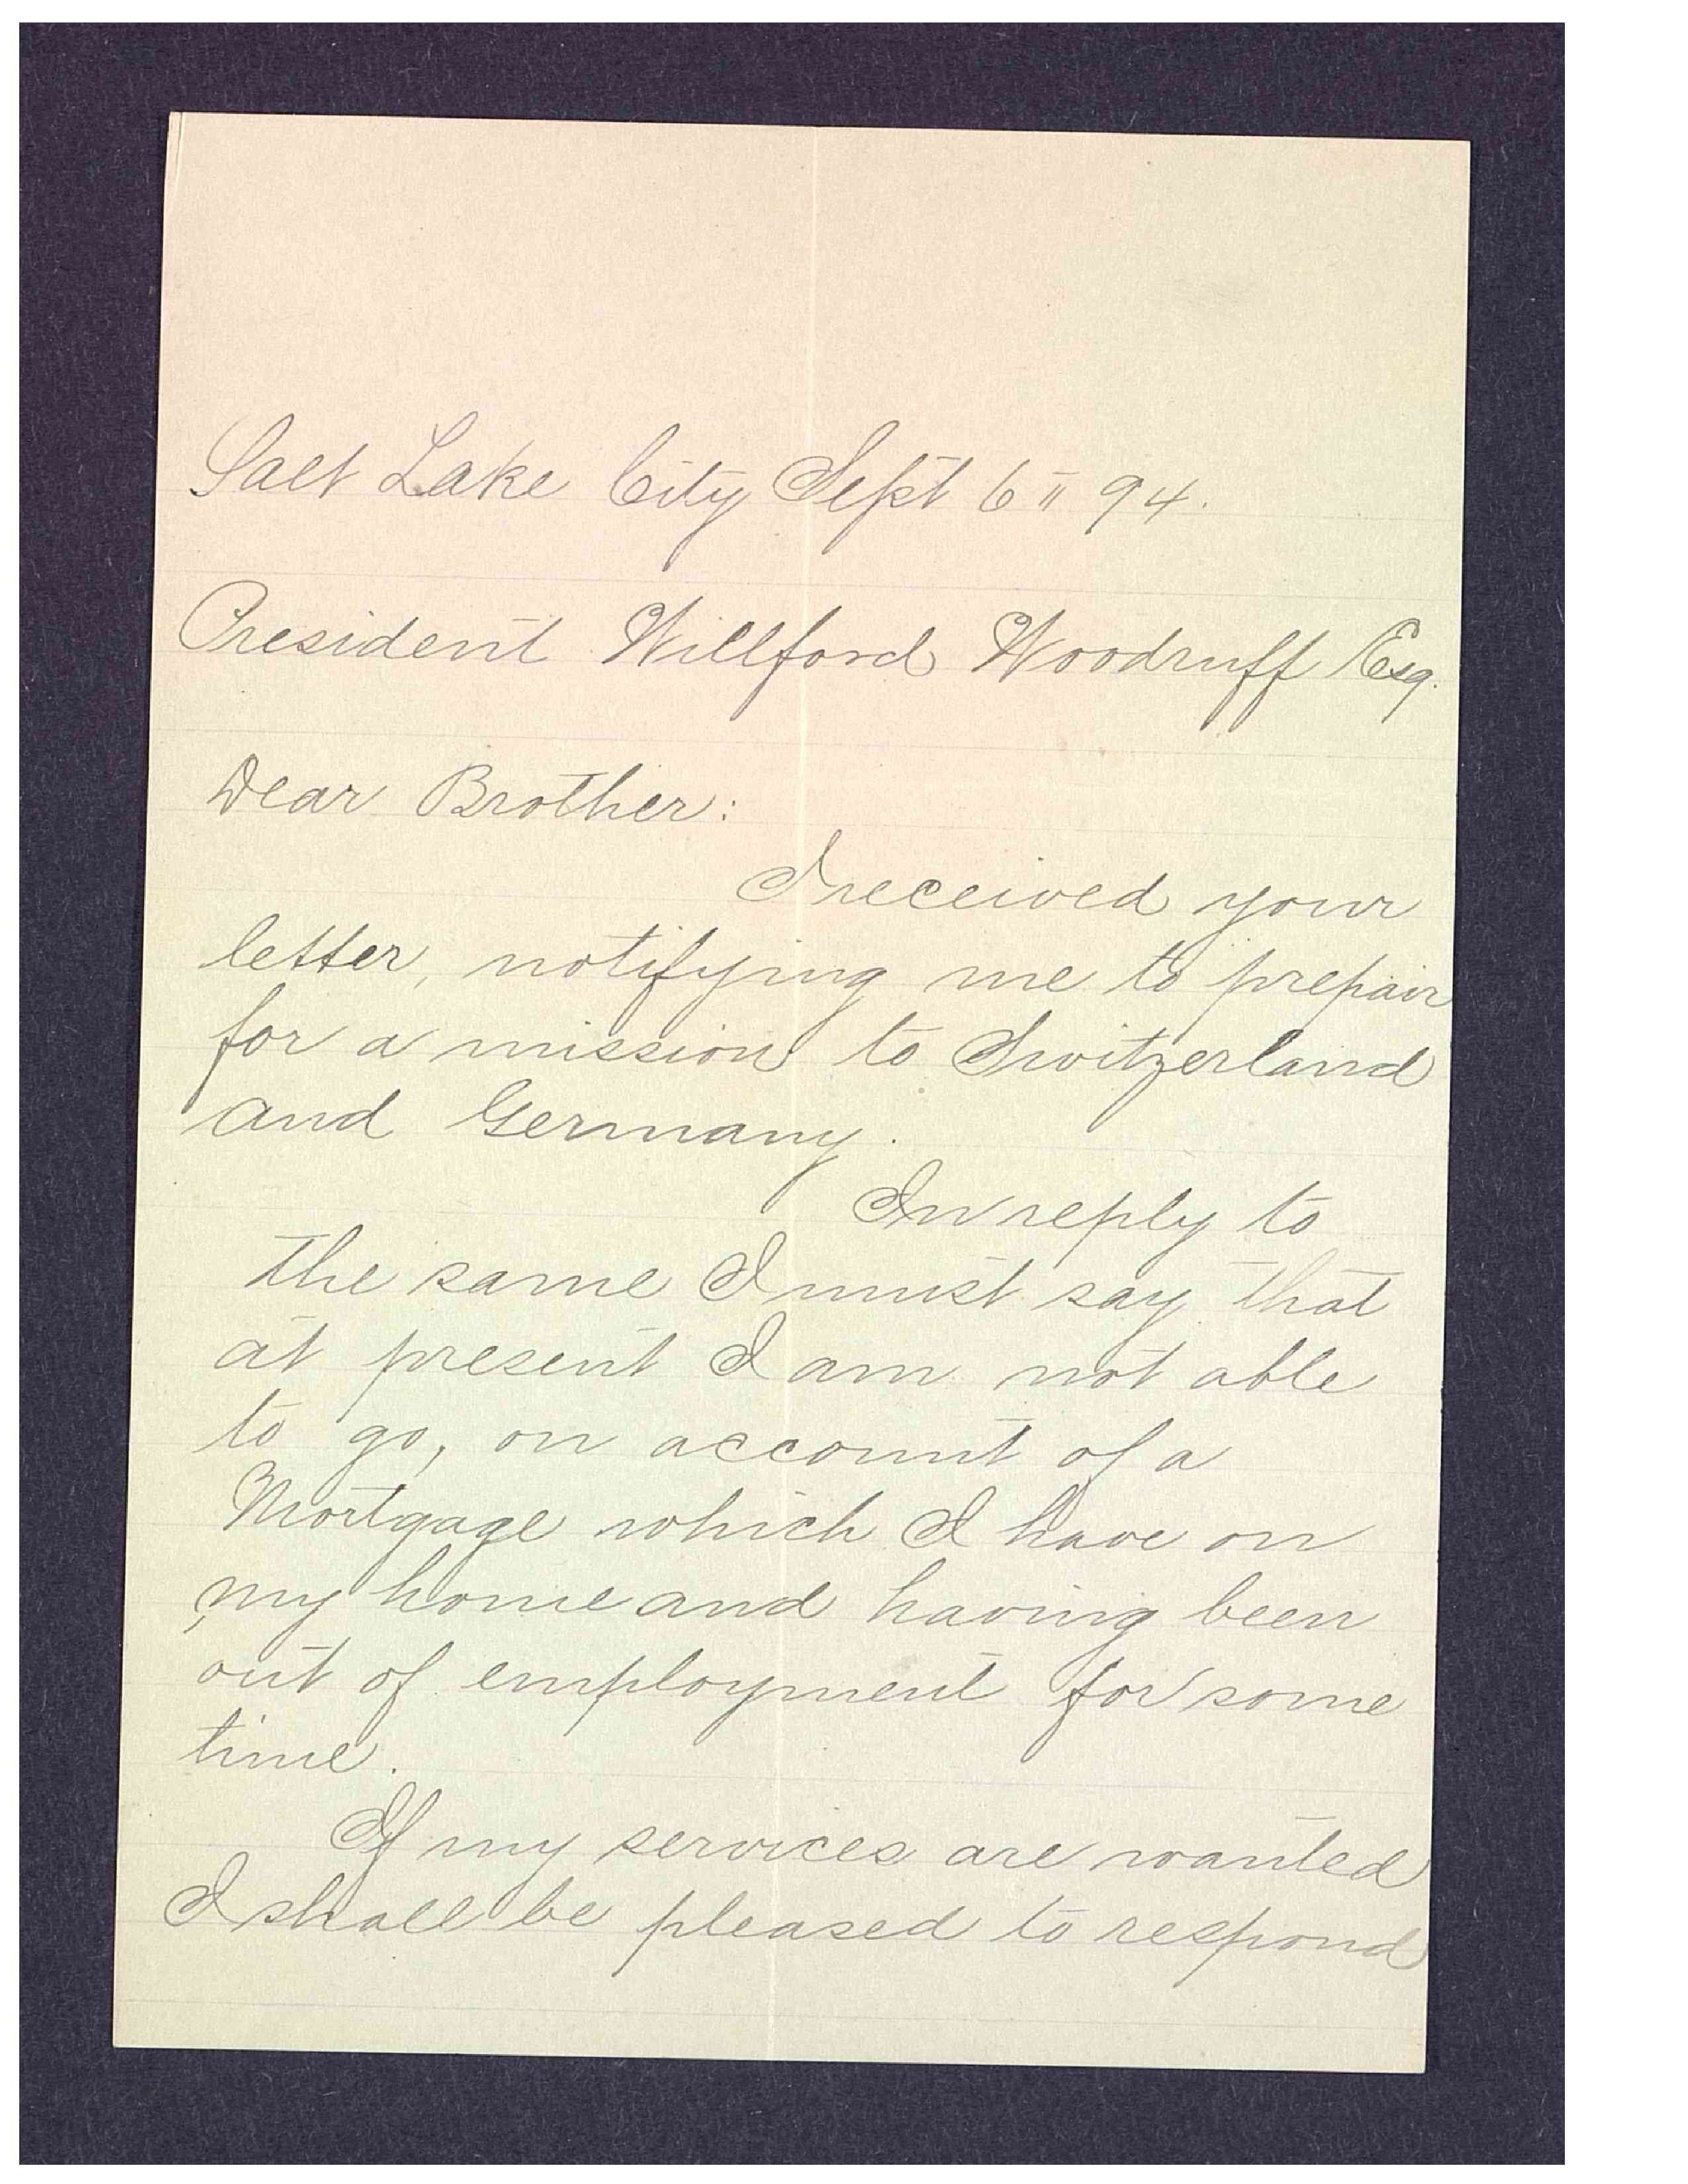 Salt Lake City Sept 6 " 94.
President Willford Woodruff Esq.
Dear Brother:
I received your
letter, notifying me to prepair
for a mission to Switzerland
and Germany.
In reply to
the same I must say that
at present I am not able
to go, on account of a
Mortgage which I have on
my home and having been
out of employment for some
time.
If my services are wanted
I shall be pleased to respond